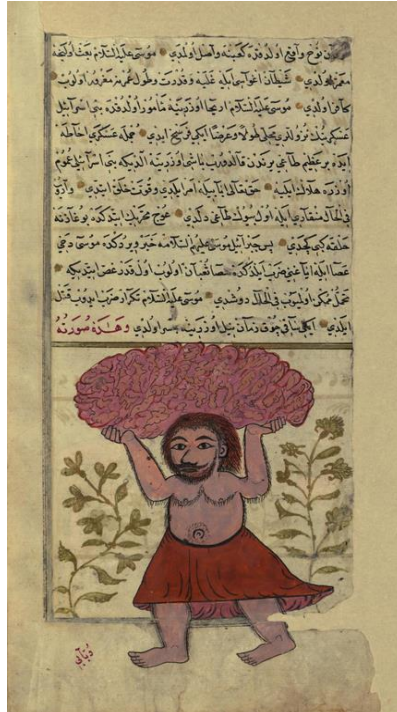 نوح واقع اولدقده كمينه واصل اولمدى موسى عليه السلام بعث اولنجه
معمر اولدى شيطان اغواسى ايله غلبه وقدرت وطول عمره مغرور اولوب
كافر اولدى موسى عليه السلام اريحا اوزرينه مأمور اولدقده بنى اسرائيل
عسكرينك نزول يرى طولا وعرضا ايكى فرسخ ايدى جمله عسكرى احاطه
ايدر بر عظيم طاغى يرندن قالدروب باشى اوزرينه الديكه بنى اسرائيل عموم
اوزره هلاك ايليه حق تعالى ابابيله امر ايلدى وقوت خلق ايتدى واروب
فى الحال منقارى ايله اول سوك طاغى دلدى عوج تحريك ايتدكده بوغازينه
حلقه كبى كچدى پس جبرائيل موسى عليهم السلامه خبر ويردكده موسى دخى
عصا ايله اياغنى ضرب ايلدكده عصا ثعبان اولوب اول قدر عض ايتديكه
تحمل ممكن اولميوب فى الحال دوشدى موسى عليه السلام تكرار ضرب ايدوب قتل
ايلدى ايكى ساقى چوق زمان نيل اوزرينه جسر اولدى وهذه صورته